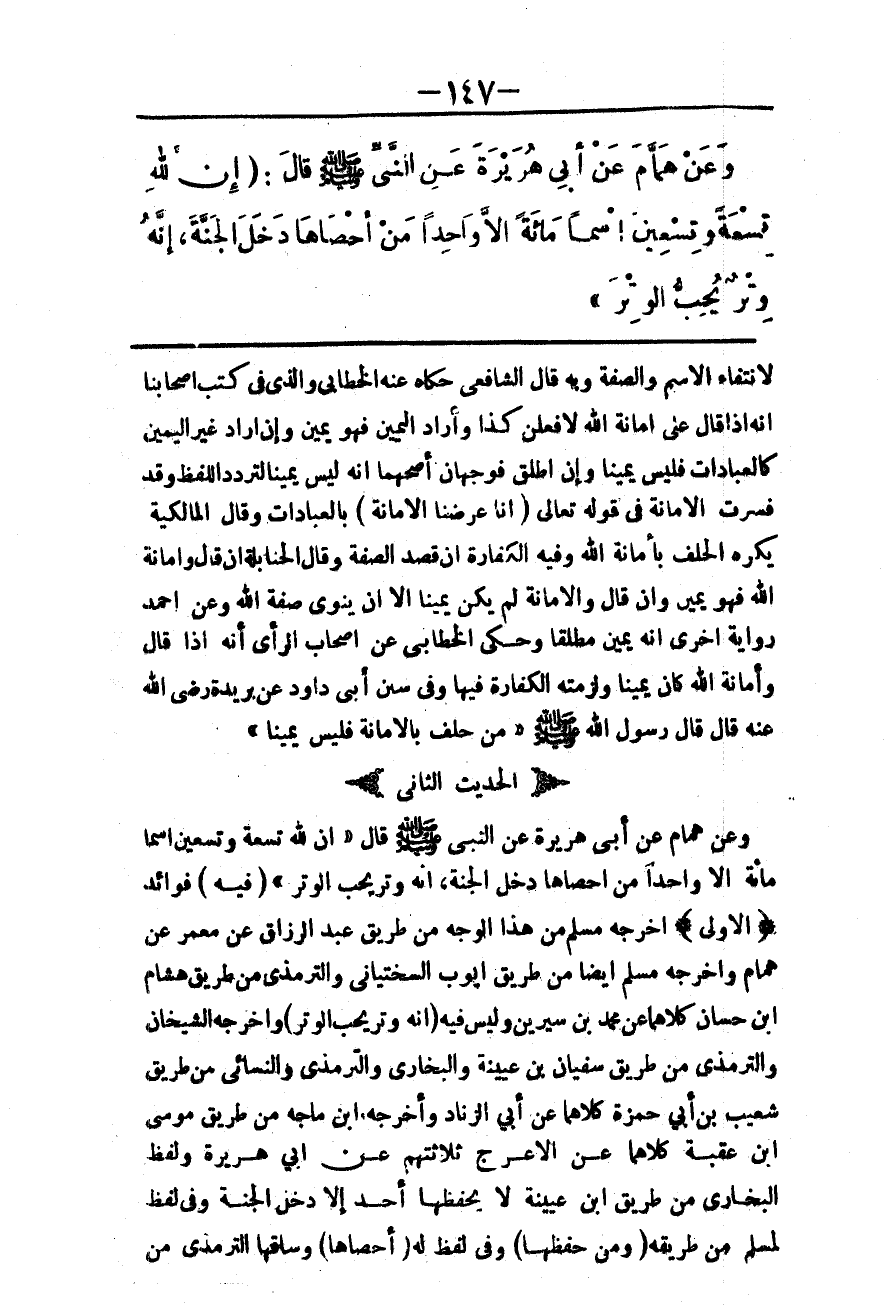 -١٤٧-
وَعَنْ هَمَّامٍ عَنْ أَبِي هُرَيْرَةَ عَنِ النَّبِيِّ ﷺ قَالَ : ( إِنَّ لِلَّهِ
تِسْعَةً وَتِسْعِينَ اسْمًا مَائَةً الاَّ وَاحِداً مَنْ أَحْصَاهَا دَخَلَ الجَنَّةَ، إِنَّهُ
وِتْرٌ يُحِبُّ الوِتْرَ »
لانتفاء الاسم والصفة وبه قال الشافعى حكاه عنه الخطابى والذى فى كتب اصحابنا
انه اذا قال على امانة الله لافعلن كذا وأراد اليمين فهو يمين وإن اراد غير اليمين
كالعبادات فليس يمينا وإن اطلق فوجهان أصحهما انه ليس يمينا لتردد اللفظ وقد
فسرت الامانة فى قوله تعالى ( انا عرضنا الامانة ) بالعبادات وقال المالكية
يكره الحلف بأمانة الله وفيه الكفارة ان قصد الصفة وقال الحنابلة ان قال وامانة
الله فهو يمين وان قال والامانة لم يكن يمينا الا ان ينوى صفة الله وعن احمد
رواية اخرى انه يمين مطلقا وحكى الخطابى عن اصحاب الرأى أنه اذا قال
وأمانة الله كان يمينا ولزمته الكفارة فيها وفى سنن أبى داود عن بريدة رضى الله
عنه قال قال رسول الله ﷺ « من حلف بالامانة فليس يمينا »
الحديث الثانى
وعن همام عن أبى هريرة عن النبى ﷺ قال « ان لله تسعة وتسعين اسما
مائة الا واحداً من احصاها دخل الجنة، انه وتر يحب الوتر » ( فيه ) فوائد
﴿ الاولى ﴾ اخرجه مسلم من هذا الوجه من طريق عبد الرزاق عن معمر عن
همام واخرجه مسلم ايضا من طريق ايوب السختيانى والترمذى من طريق هشام
ابن حسان كلاهما عن محمد بن سيرين وليس فيه (انه وتر يحب الوتر) واخرجه الشيخان
والترمذى من طريق سفيان بن عيينة والبخارى والترمذى والنسائى من طريق
شعيب بن أبي حمزة كلاهما عن أبي الزناد وأخرجه ابن ماجه من طريق موسى
ابن عقبة كلاهما عن الاعرج ثلاثتهم عن ابي هريرة ولفظ
البخارى من طريق ابن عيينة لا يحفظها أحد إلا دخل الجنة وفى لفظ
لمسلم من طريقه ( ومن حفظها ) وفى لفظ له ( أحصاها ) وساقها الترمذى من